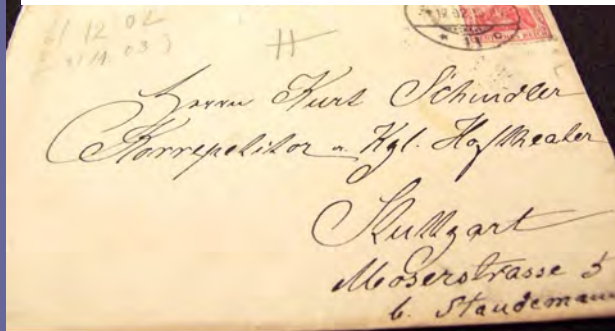 12 02
11. 03)
H
12.02
Herrn Kurt Schindler
Korrepetitor a. Kgl. Hoftheater
Stuttgart
Moserstrasse 5
b. Staudemann